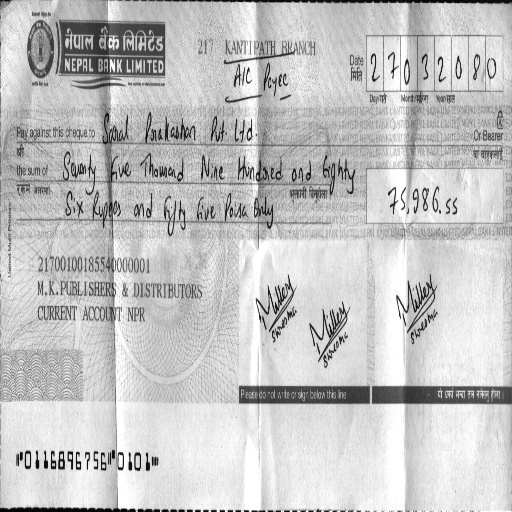 नेपाल बैंक लिमिटेड
NEPAL BANK LIMITED
217 KANTIPATH BRANCH
A/C Payee
Date
मिति
27032080
Day/गते Month/महिना Year/साल
Pay against this cheque to Saral Prakashan Pvt. Ltd.
Or Bearer
श्री
वा वाहकलाई
the sum of Seventy Five Thousand Nine Hundred and Eighty
रकम अक्षरमा
Six Rupees and Fifty Five Paisa Only
75,986.55
21700100185540000001
M.K.PUBLISHERS & DISTRIBUTORS
CURRENT ACCOUNT NPR
Please do not write or sign below this line
"0116896756"0101"